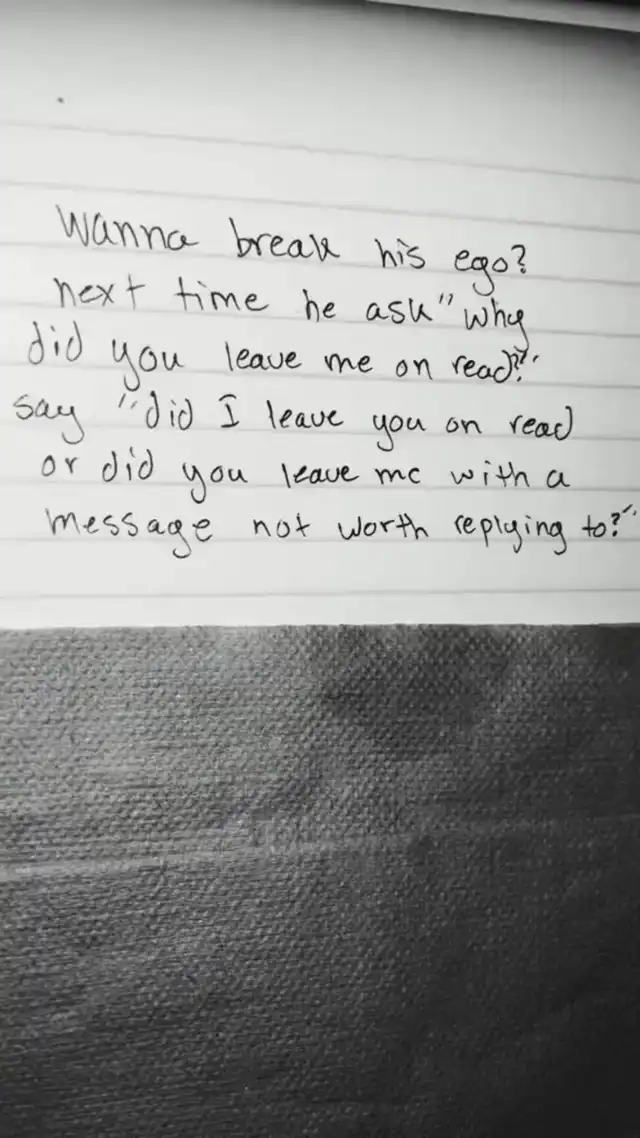 Wanna break his ego?
next time he ask "why
did you leave me on read?"
say "did I leave you on read
or did you leave me with a
message not worth replying to?"